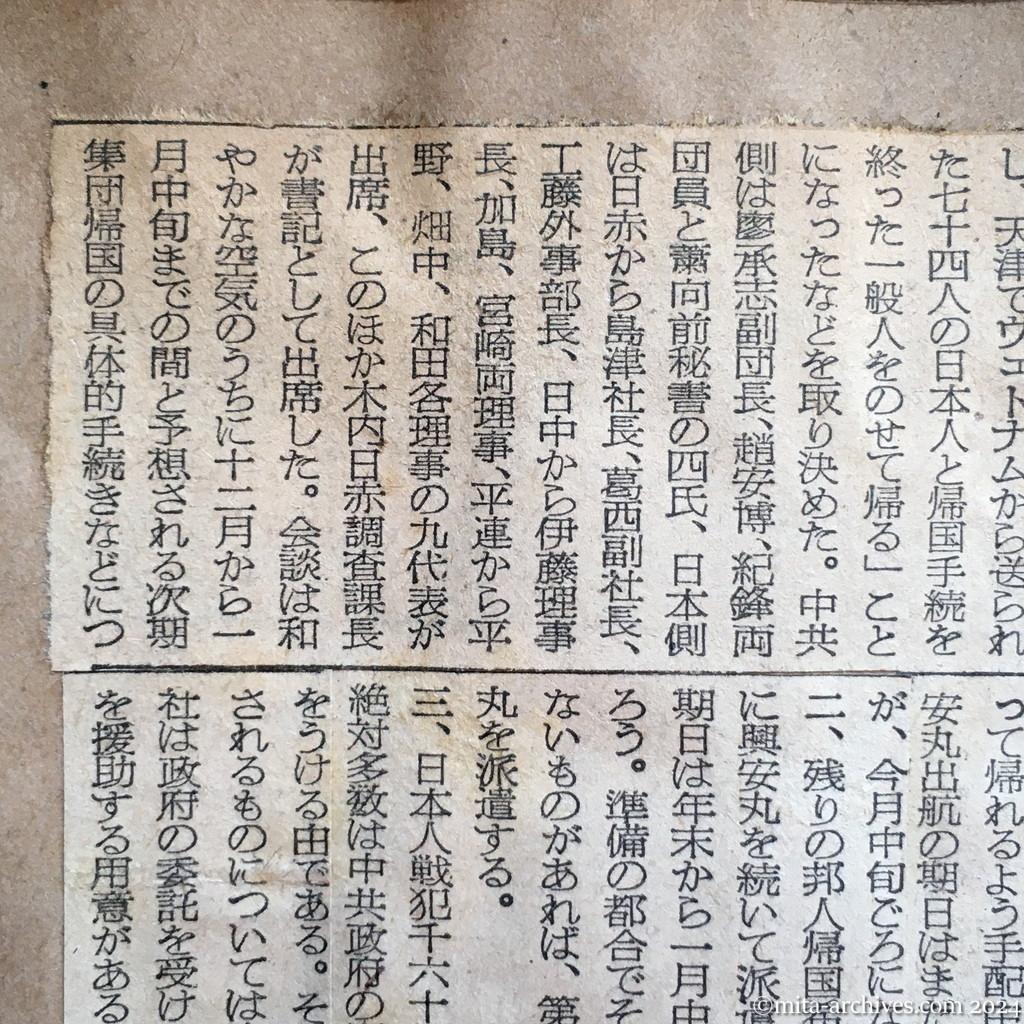 し、天津でヴェトナムから送られ
た七十四人の日本人と帰国手続を
終った一般人をのせて帰る」こと
になったなどを取り決めた。中共
側は廖承志副団長、趙安博、紀鋒両
団員と蕭向前秘書の四氏、日本側
は日赤から島津社長、葛西副社長、
工藤外事部長、日中から伊藤理事
長、加島、宮崎両理事、平連から平
野、畑中、和田各理事の九代表が
出席、このほか木内日赤調査課長
が書記として出席した。会談は和
やかな空気のうちに十二月から一
月中旬までの間と予想される次期
集団帰国の具体的手続きなどにつ
って帰れるよう手配
安丸出航の期日はま
が、今月中旬ごろに
二、残りの邦人帰国
に興安丸を続いて派遣
期日は年末から一月中
ろう。準備の都合でそ
ないものがあれば、第
丸を派遣する。
三、日本人戦犯千六十
絶対多数は中共政府の
をうける由である。そ
されるものについては
社は政府の委託を受け
を援助する用意がある
©mita-archives.com 2024